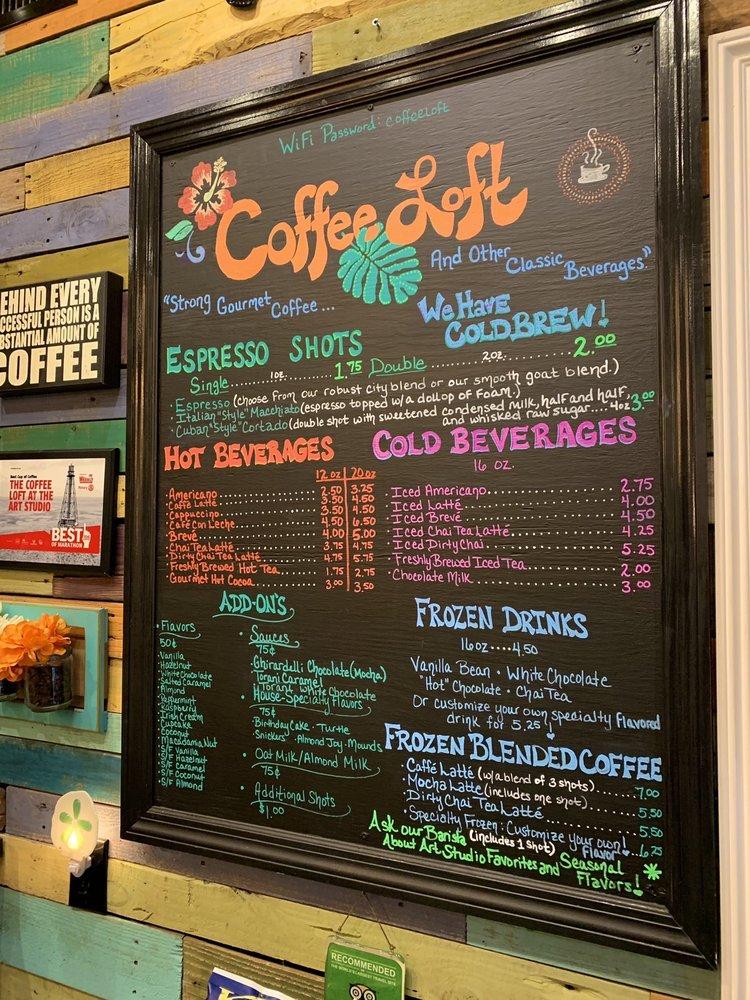 WiFi Password: coffeeloft
Coffee Loft
"Strong Gourmet Coffee ... And Other Classic Beverages."
We Have
COLD BREW!
ESPRESSO SHOTS
Single ... 1oz. ... 1.75 Double ... 2oz. ... 2.00
· Espresso (choose from our robust city blend or our smooth goat blend.)
· Italian "Style" Macchiato (espresso topped w/a dollop of foam.)
· Cuban "Style" Cortado (double shot with sweetened condensed milk, half and half,
and whisked raw sugar.... 4oz 3.00
HOT BEVERAGES
12oz 20oz
· Americano ... 2.50 3.25
· Caffé Latté ... 3.50 4.50
· Cappuccino ... 3.50 4.50
· Café Con Leche ... 4.50 6.50
· Brevé ... 4.00 5.00
· Chai Tea Latté ... 3.75 4.75
· Dirty Chai Tea Latté ... 4.75 5.75
· Freshly Brewed Hot Tea ... 1.75 2.75
· Gourmet Hot Cocoa ... 3.00 3.50
COLD BEVERAGES
16 oz.
· Iced Americano ... 2.75
· Iced Latté ... 4.00
· Iced Brevé ... 4.50
· Iced Chai Tea Latté ... 4.25
· Iced Dirty Chai ... 5.25
· Freshly Brewed Iced Tea ... 2.00
· Chocolate Milk ... 3.00
ADD-ON'S
· Flavors
50¢
· Vanilla
· Hazelnut
· White Chocolate
· Salted Caramel
· Almond
· Peppermint
· Raspberry
· Irish Cream
· Cupcake
· Coconut
· Macadamia Nut
· S/F Vanilla
· S/F Hazelnut
· S/F Caramel
· S/F Coconut
· S/F Almond
· Sauces
75¢
Ghirardelli Chocolate (Mocha)
Torani Caramel
Torani White Chocolate
· House-Specialty Flavors
75¢
Birthday Cake · Turtle
Snickers · Almond Joy · Mounds
· Oat Milk/Almond Milk
75¢
· Additional Shots
$1.00
FROZEN DRINKS
16oz....4.50
Vanilla Bean · White Chocolate
"Hot" Chocolate · Chai Tea
Or customize your own specialty Flavored
drink for 5.25!
FROZEN BLENDED COFFEE
· Caffé Latté (w/a blend of 3 shots) ... 7.00
· Mocha Latté (includes one shot) ... 5.50
· Dirty Chai Tea Latté ... 5.50
· Specialty Frozen: Customize your own!
(includes 1 shot) Flavor ... 6.25
Ask our Barista
About Art Studio Favorites and Seasonal
Flavors!
BEHIND EVERY
SUCCESSFUL PERSON IS A
SUBSTANTIAL AMOUNT OF
COFFEE
Best Cup of Coffee
THE COFFEE
LOFT AT THE
ART STUDIO
BEST
OF MARATHON
RECOMMENDED